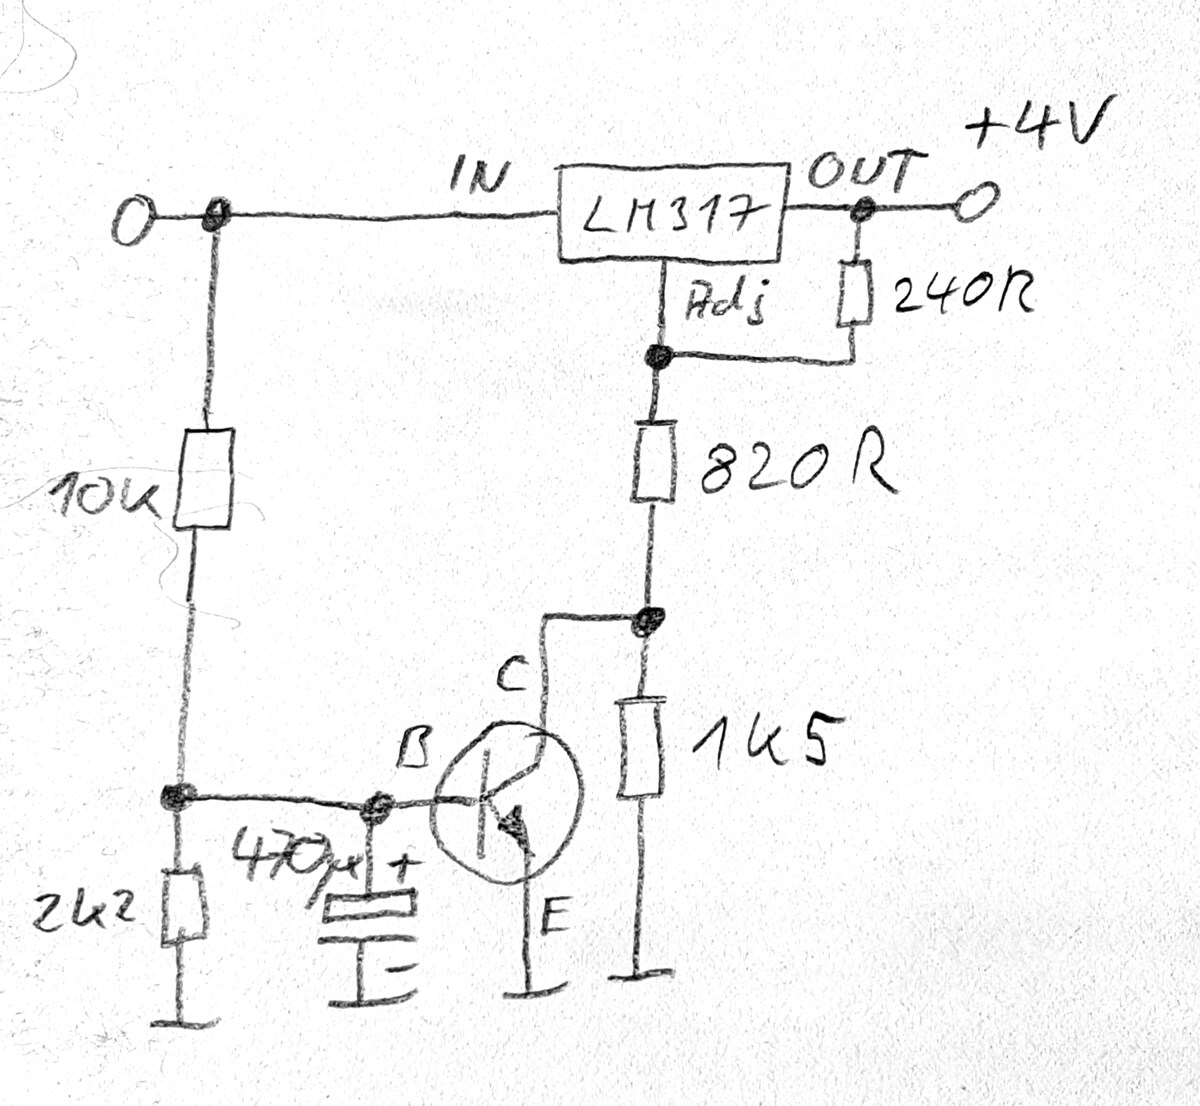 +4V
IN
OUT
LM317
Adj
240R
820R
10k
C
B
1k5
470µ +
2k2
E
-